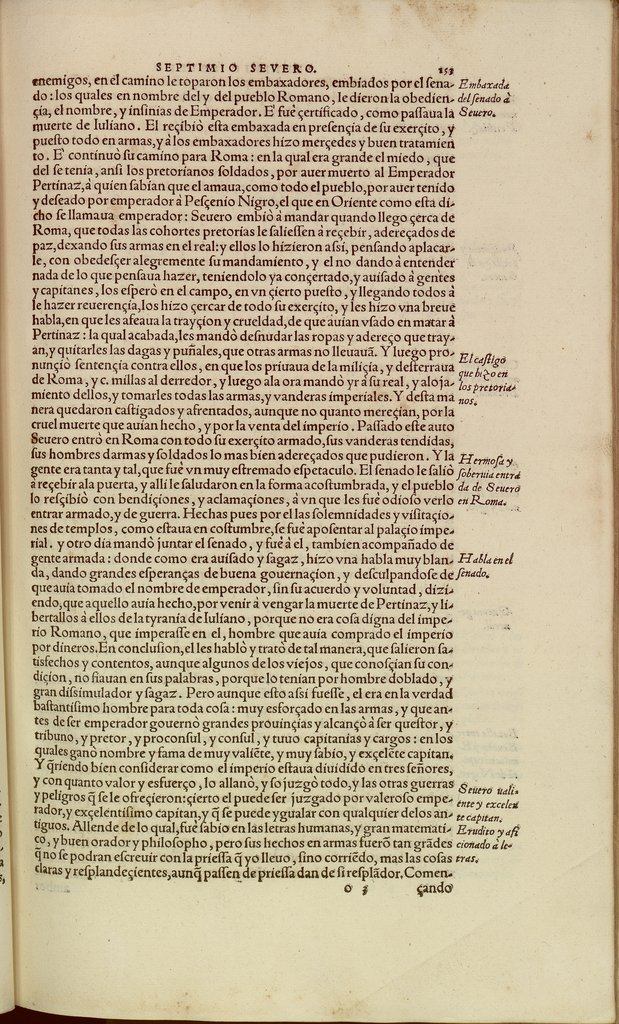 SEPTIMIO SEVERO. 153
enemigos, en el camino le toparon los embaxadores, embiados por el sena-
do: los quales en nombre del y del pueblo Romano, le dieron la obedien-
çia, el nombre, y insinias de Emperador. E' fuè çertificado, como passaua la
muerte de Iuliano. El reçibiò esta embaxada en presençia de su exerçito, y
puesto todo en armas, y à los embaxadores hizo merçedes y buen tratamien
to. E' continuò su camino para Roma: en la qual era grande el miedo, que
del se tenia, ansi los pretorianos soldados, por auer muerto al Emperador
Pertinaz, à quien sabian que el amaua, como todo el pueblo, por auer tenido
y deseado por emperador à Pesçenio Nigro, el que en Oriente como esta di-
cho se llamaua emperador: Seuero embiò à mandar quando llego çerca de
Roma, que todas las cohortes pretorias le saliessen à reçebir, adereçados de
paz, dexando sus armas en el real: y ellos lo hizieron assi, pensando aplacar-
le, con obedesçer alegremente su mandamiento, y el no dando à entender
nada de lo que pensaua hazer, teniendolo ya conçertado, y auisado à gentes
y capitanes, los esperò en el campo, en vn çierto puesto, y llegando todos à
le hazer reuerençia, los hizo çercar de todo su exerçito, y les hizo vna breue
habla, en que les afeaua la trayçion y crueldad, de que auian vsado en matar à
Pertinaz: la qual acabada, les mandò desnudar las ropas y adereço que tray-
an, y quitarles las dagas y puñales, que otras armas no lleuauã. Y luego pro-
nunçiò sentençia contra ellos, en que los priuaua de la miliçia, y desterraua
de Roma, y c. millas al derredor, y luego ala ora mandò yr à su real, y aloja-
miento dellos, y tomarles todas las armas, y vanderas imperiales. Y desta ma
nera quedaron castigados y afrentados, aunque no quanto mereçian, por la
cruel muerte que auian hecho, y por la venta del imperio. Passado este auto
Seuero entrò en Roma con todo su exerçito armado, sus vanderas tendidas,
sus hombres darmas y soldados lo mas bien adereçados que pudieron. Y la
gente era tanta y tal, que fuè vn muy estremado espetaculo. El senado le saliò
à reçebir ala puerta, y alli le saludaron en la forma acostumbrada, y el pueblo
lo resçibiò con bendiçiones, y aclamaçiones, à vn que les fuè odioso verlo
entrar armado, y de guerra. Hechas pues por el las solemnidades y visitaçio-
nes de templos, como estaua en costumbre, se fuè aposentar al palaçio impe-
rial. y otro dia mandò juntar el senado, y fuè à el, tambien acompañado de
gente armada: donde como era auisado y sagaz, hizo vna habla muy blan-
da, dando grandes esperanças de buena gouernaçion, y desculpandose de
que auia tomado el nombre de emperador, sin su acuerdo y voluntad, dizi-
endo, que aquello auia hecho, por venir à vengar la muerte de Pertinaz, y li-
bertallos à ellos de la tyrania de Iuliano, porque no era cosa digna del impe-
rio Romano, que imperasse en el, hombre que auia comprado el imperio
por dineros. En conclusion, el les hablò y tratò de tal manera, que salieron sa-
tisfechos y contentos, aunque algunos de los viejos, que conosçian su con-
diçion, no fiauan en sus palabras, porque lo tenian por hombre doblado, y
gran dissimulador y sagaz. Pero aunque esto assi fuesse, el era en la verdad
bastantissimo hombre para toda cosa: muy esforçado en las armas, y que an-
tes de ser emperador gouernò grandes prouinçias y alcançò à ser questor, y
tribuno, y pretor, y proconsul, y consul, y tuuo capitanias y cargos: en los
quales ganò nombre y fama de muy valiẽte, y muy sabio, y exçelẽte capitan.
Y q̃riendo bien considerar como el imperio estaua diuidido en tres señores,
y con quanto valor y esfuerço, lo allanò, y sojuzgò todo, y las otras guerras
y peligros q̃ se le ofreçieron: çierto el puede ser juzgado por valeroso empe-
rador, y exçelentissimo capitan, y q̃ se puede ygualar con qualquier delos an-
tiguos. Allende de lo qual, fuè sabio en las letras humanas, y gran matemati-
co, y buen orador y philosopho, pero sus hechos en armas fuerõ tan grãdes
q̃ no se podran escreuir con la priessa q̃ yo lleuo, sino corriẽdo, mas las cosas
claras y resplandeçientes, aunq̃ passen de priessa dan de si resplãdor. Comen-
o 3 çando
Embaxada
del senado à
Seuero.
El castigo
que hizo en
los pretoria-
nos.
Hermosa y
soberuia entra
da de Seuero
en Roma.
Habla en el
senado.
Seuero uali-
ente y excelen
te capitan.
Erudito y afi
cionado à le-
tras.